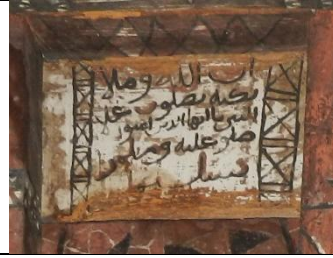 ان الله وملا
ئكته يصلون على
النبي يا ايها الذين امنوا
صلوا عليه وسلموا
تسليما